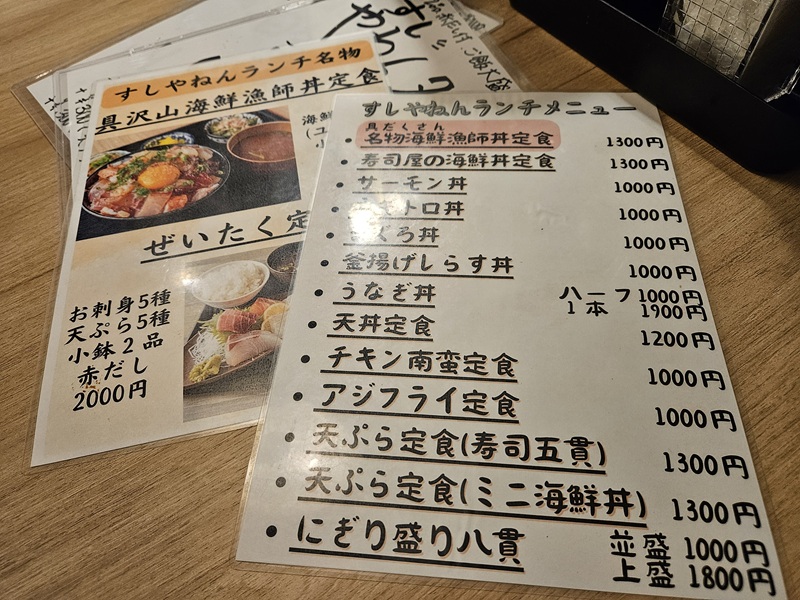 すしやねんランチ名物
具沢山海鮮漁師丼定食
海鮮
ぜいたく定
お刺身5種
天ぷら5種
小鉢2品
赤だし
2000円
すしやねんランチメニュー
具だくさん
・名物海鮮漁師丼定食 1300円
・寿司屋の海鮮丼定食 1300円
・サーモン丼 1000円
・ネギトロ丼 1000円
・まぐろ丼 1000円
・釜揚げしらす丼 1000円
・うなぎ丼 ハーフ 1000円
1本 1900円
・天丼定食 1200円
・チキン南蛮定食 1000円
・アジフライ定食 1000円
・天ぷら定食(寿司五貫) 1300円
・天ぷら定食(ミニ海鮮丼) 1300円
・にぎり盛り八貫 並盛 1000円
上盛 1800円